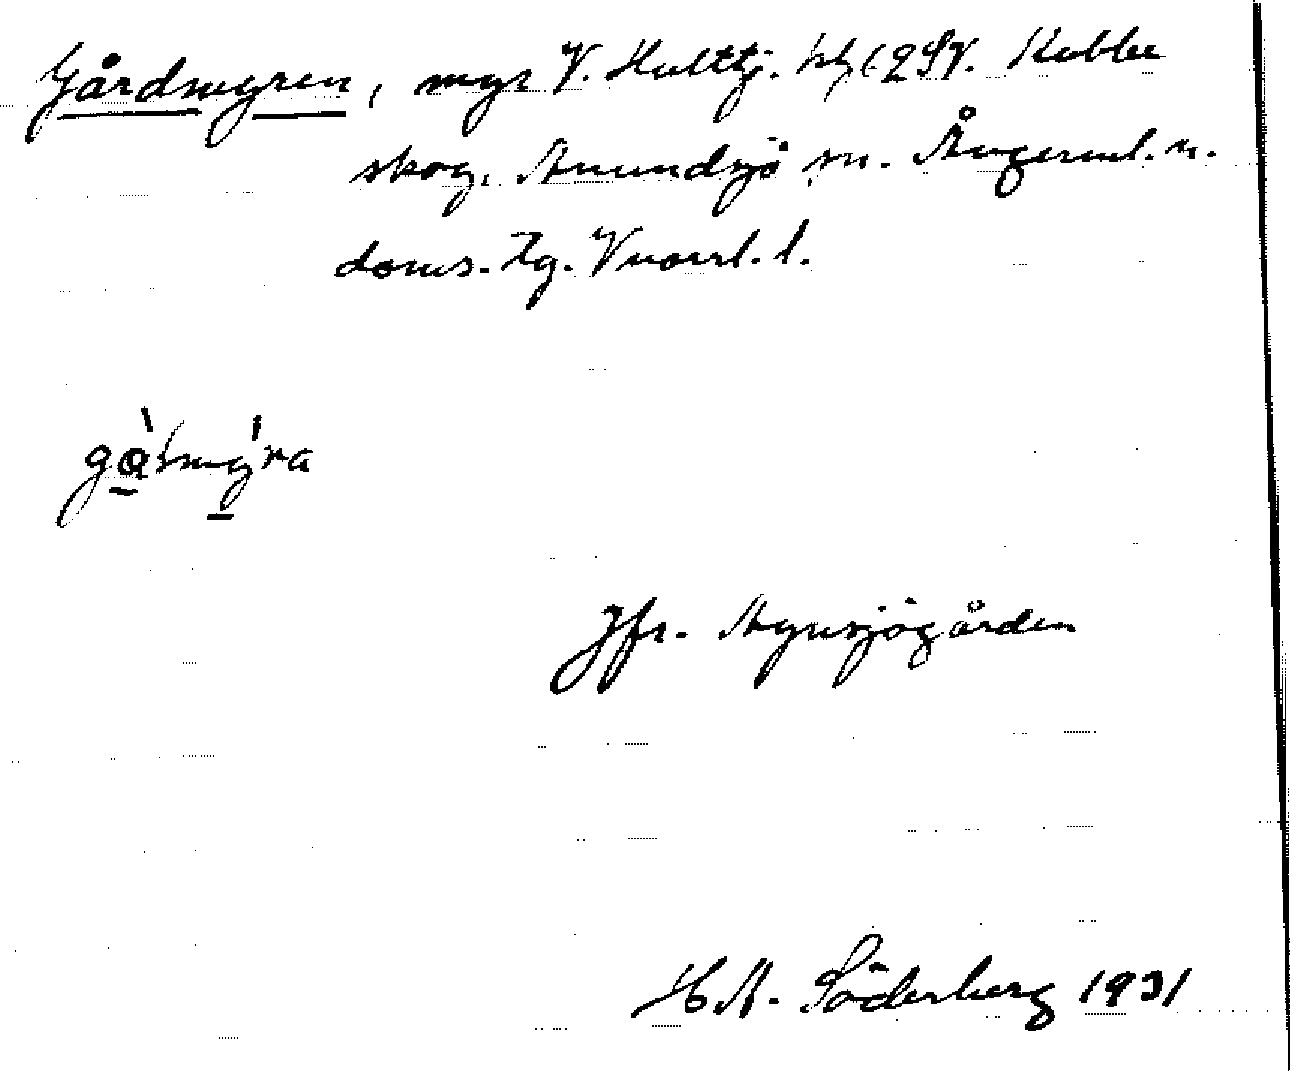 Gårdmyren, myr V. Hultsj. bl. 29 V. Kubbe
skog, Anundsjö sn. Ångerml. n.
doms. tg. Vnorrl. l.
gå̀lmýra
Jfr. Agnsjögården
H A. Söderberg 1931